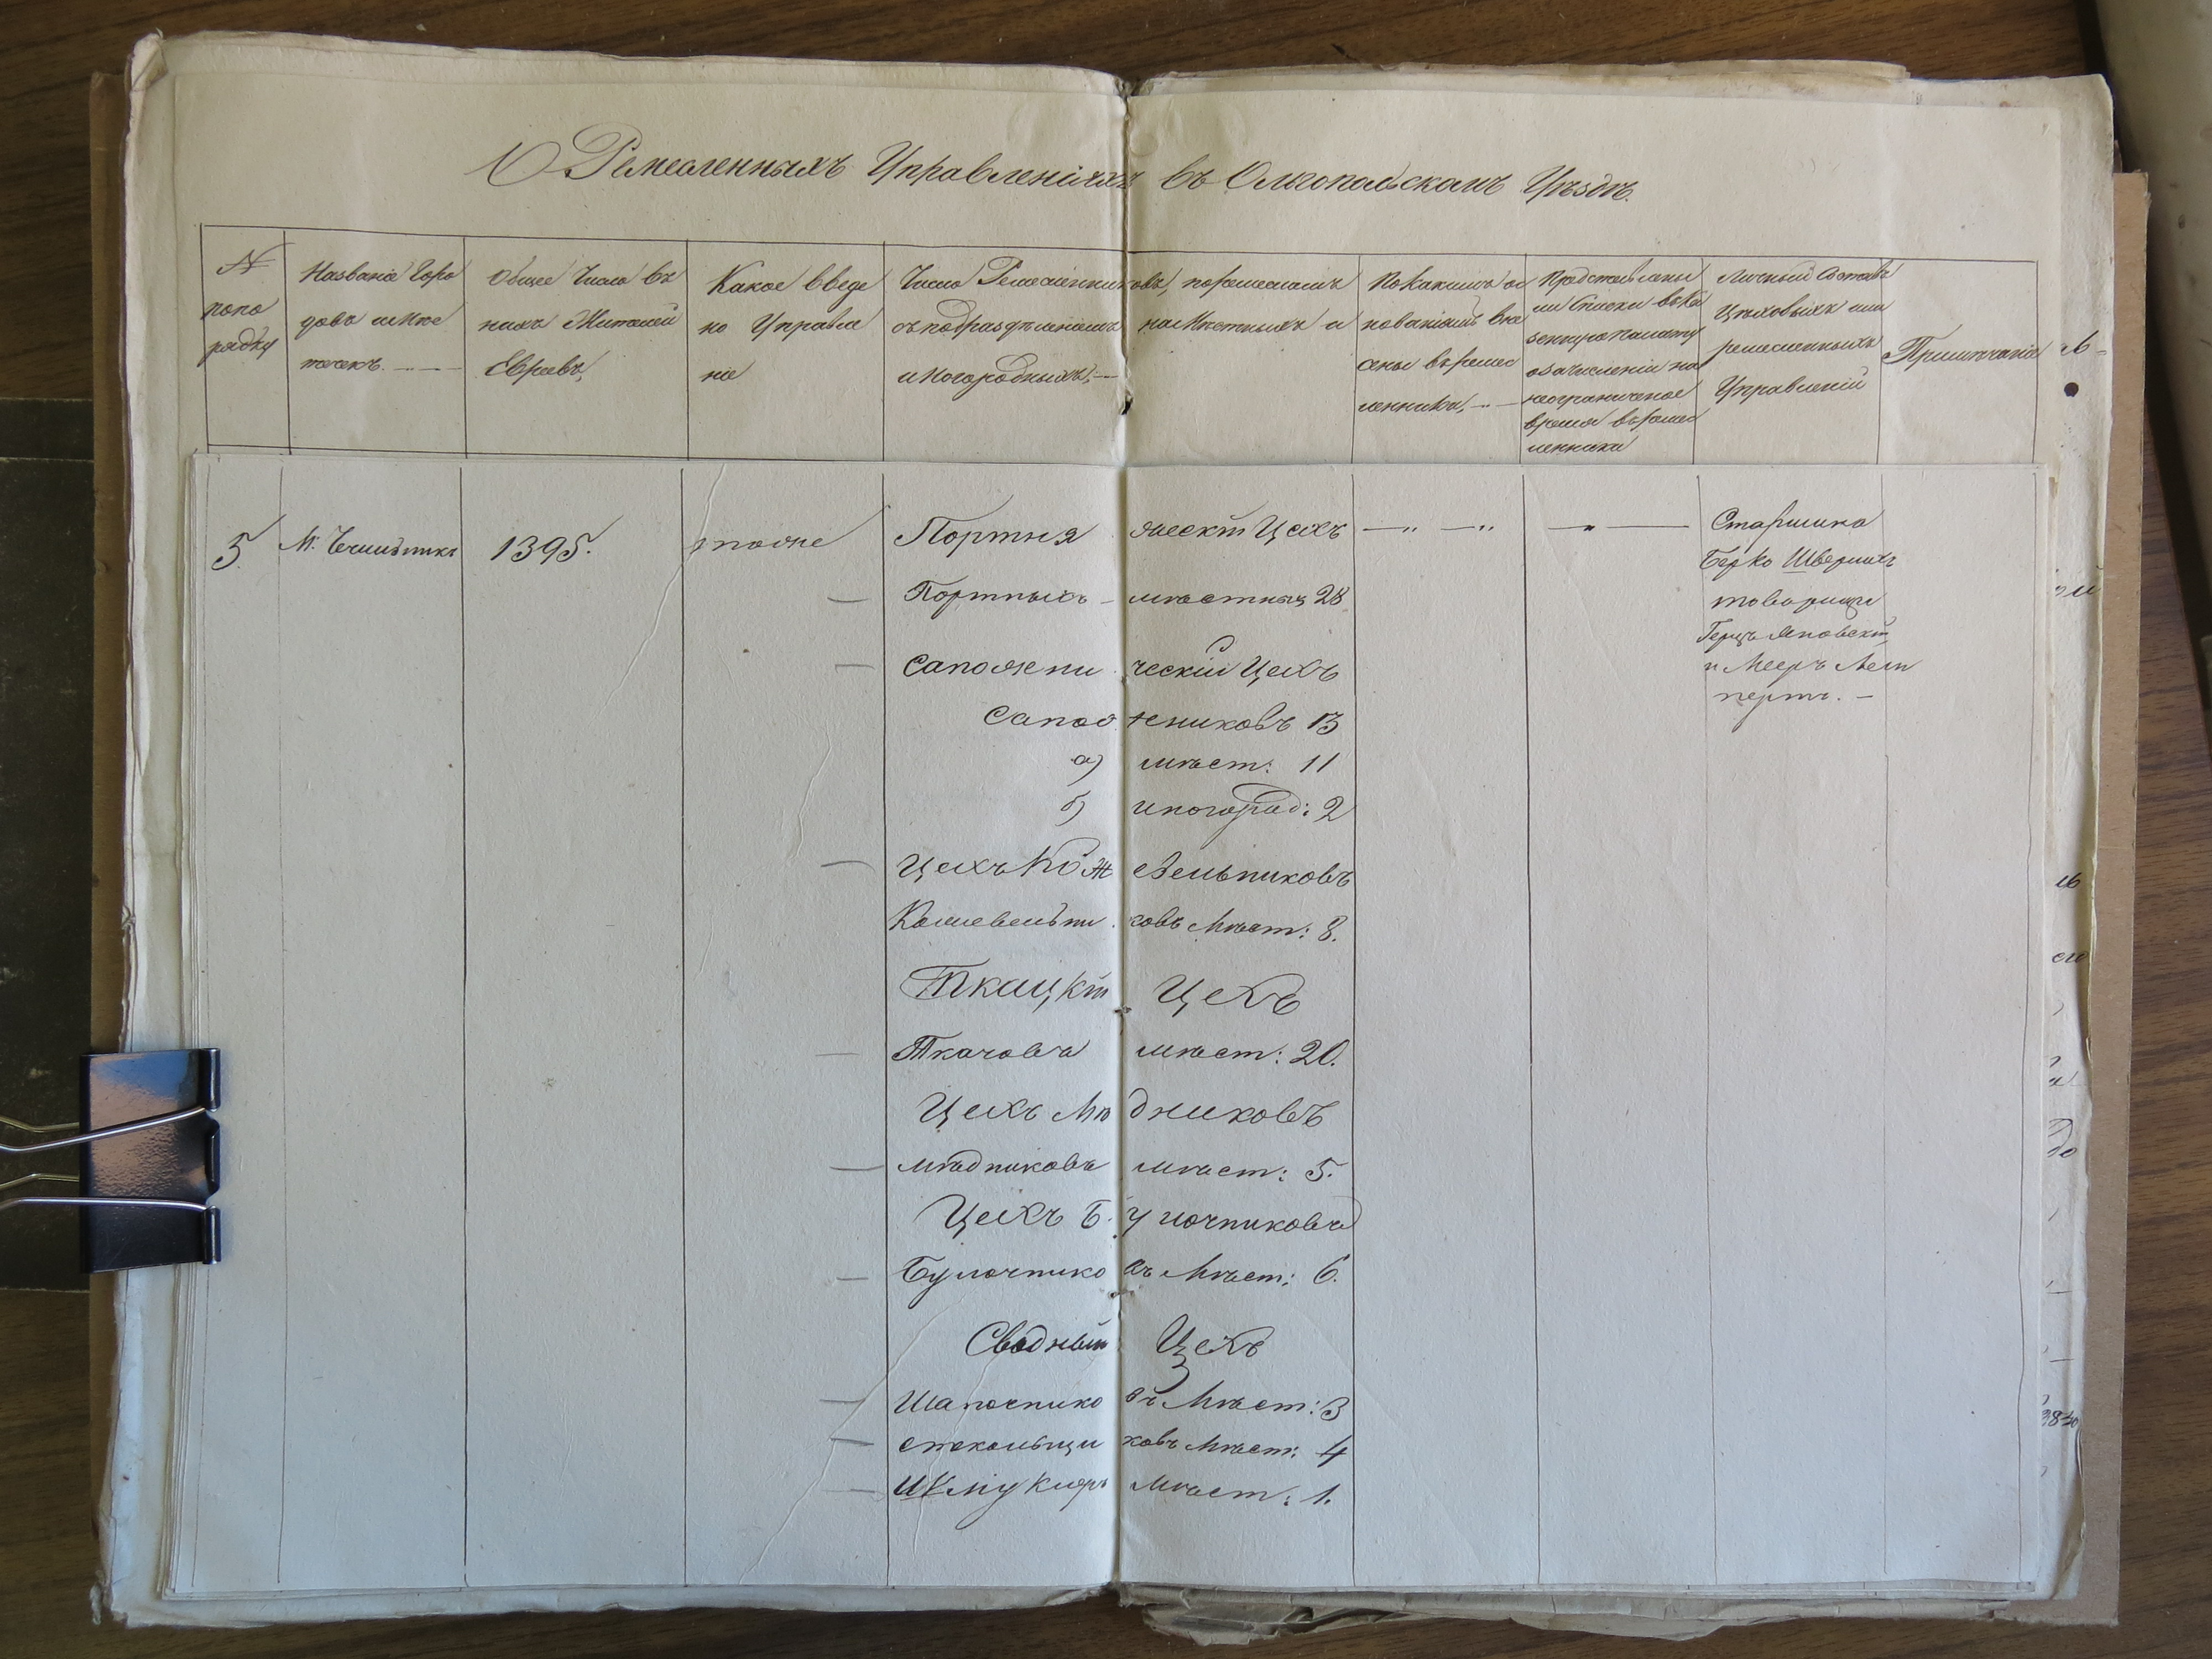 О Ремесленныхъ Управленіяхъ въ Ольгопольскомъ Уѣздѣ.
№
попо
рядку
Названіе Горо
довъ и Мѣс
течекъ.
Общее Число въ
нихъ Жителей
Евреевъ,
Какое введе
но Управле
ніе
Число Ремесленниковъ, поремесламъ
съ подраздѣленіемъ на Мѣстныхъ и
иногородныхъ,
По какимъ ос
нованіямъ вне
сены въ ремес
ленники,
Представлены
ли Списки въ Ка
зенную Палату
о зачисленіи на
неограниченое
время въ ремес
ленники
Личный Составъ
Цѣховыхъ или
ремесленныхъ
Управленій
Примѣчаніе
5 М. Чечельникъ 1395. тоже Портняжескій Цехъ
Портныхъ мѣстныхъ 28
Сапожническій Цехъ
Сапожниковъ 13
а) мѣст: 11
б) иногород: 2
Цехъ Кожевельниковъ
Кожевельниковъ Мѣст: 8.
Ткацкій Цехъ
Ткачовъ мѣст: 20.
Цехъ Мѣдниковъ
мѣдниковъ мѣст: 5.
Цехъ Булочниковъ
Булочниковъ Мѣст: 6.
Сводный Цехъ
Шапочниковъ Мѣст: 3
стекольщиковъ Мѣст: 4
Шмуклеръ Мѣст: 1.
Старшина
Берко Шверинъ
товарищи
Герцъ Яновскій
и Мееръ Лем
пертъ.